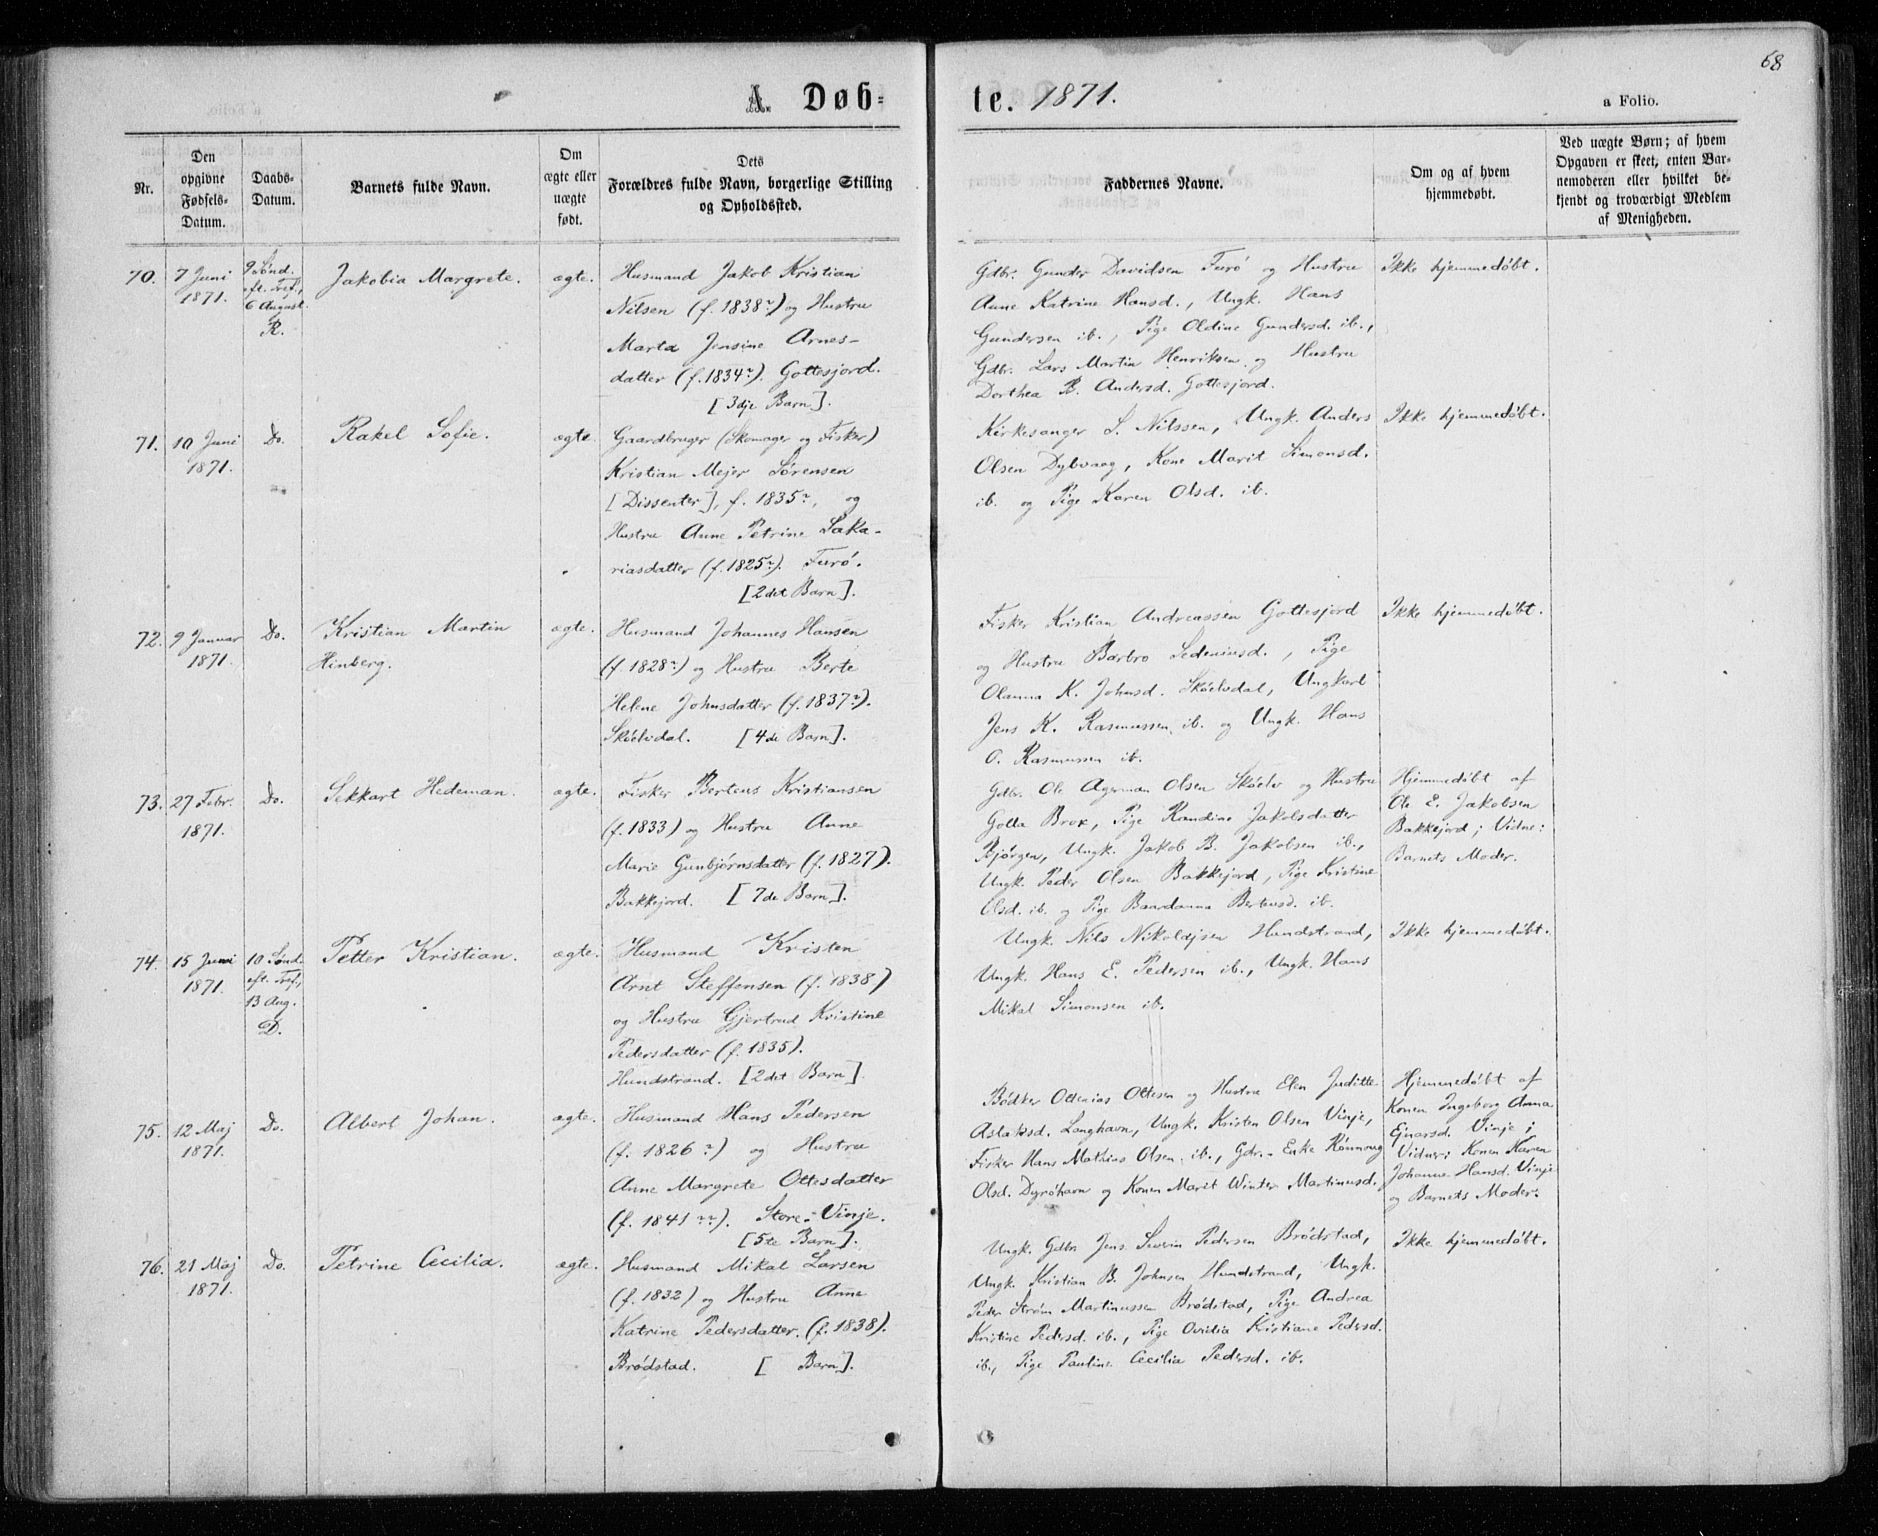 68
A Døb=
te. 1871.
a Folio.
Nr.
Den opgivne Fødsels-Datum.
Daabs-Datum.
Barnets fulde Navn.
Om ægte eller uægte født.
Dets Forældres fulde Navn, borgerlige Stilling og Opholdssted.
Faddernes Navne.
Om og af hvem hjemmedøbt.
Ved uægte Børn; af hvem Opgaven er skeet, enten Barnemoderen eller hvilket bekjendt og troværdigt Medlem af Menigheden.
70.
7 Juni
1871.
9 Sønd.
eft. Tref.,
6 August.
R.
Jakobia Margrete.
ægte.
Husmand Jakob Kristian
Nilsen (f. 1838) og Hustru
Marta Jensine Arnes-
datter (f. 1834). Gottesjord.
[3dje Barn].
Gdbr. Gunder Davidsen Furø og Hustru
Anne Katrine Hansd., Ungk. Hans
Gundersen ib., Pige Oldine Gundersd. ib.,
Gdbr. Lars Martin Henriksen og Hustru
Dorthea B. Andersd. Gottesjord.
Ikke hjemmedøbt.
71.
10 Juni
1871.
Do.
Rakel Sofie.
ægte.
Gaardbruger (Skomager og Fisker)
Kristian Mejer Sørensen
[Dissenter], f. 1835, og
Hustru Anne Petrine Saka-
riasdatter (f. 1825). Furø.
[2det Barn].
Kirkesanger S. Nilssen, Ungk. Anders
Olsen Dybvaag, Kone Marit Simonsd.
ib. og Pige Karen Olsd. ib.
Ikke hjemmedøbt.
72.
9 Januar
1871.
Do.
Kristian Martin
Hinberg.
ægte.
Husmand Johannes Hansen
(f. 1828) og Hustru Berte
Helene Johnsdatter (f. 1837).
Skøelvdal. [4de Barn].
Fisker Kristian Andreassen Gottesjord
og Hustru Barbro Sedeniusd., Pige
Olanna K. Johnsd. Skøelvdal, Ungkarl
Jens K. Rasmussen ib. og Ungk. Hans
O. Rasmussen ib.
Ikke hjemmedøbt.
73.
27 Febr.
1871.
Do.
Sekkart Hedeman.
ægte.
Fisker Berteus Kristiansen
(f. 1833) og Hustru Anne
Marie Gunbjørnsdatter (f. 1827).
Bakkejord. [7de Barn].
Gdbr. Ole Agerman Olsen Skøelv og Hustru
Golla Brox, Pige Randine Jakobsdatter
Bjørgen, Ungk. Jakob B. Jakobsen ib.,
Ungk. Peder Olsen Bakkejord, Pige Kristine
Olsd. ib. og Pige Baardanna Berteusd. ib.
Hjemmedøbt af
Ole E. Jakobsen
Bakkejord; Vidne:
Barnets Moder.
74.
15 Juni
1871.
10 Sønd.
eft. Tref.,
13 Aug.
D.
Petter Kristian.
ægte.
Husmand Kristen
Arnt Steffensen (f. 1838)
og Hustru Gjertrud Kristine
Pedersdatter (f. 1835).
Hundstrand. [2det Barn].
Ungk. Nils Nikolajsen Hundstrand,
Ungk. Hans E. Pedersen ib., Ungk. Hans
Mikal Simonsen ib.
Ikke hjemmedøbt.
75.
12 Maj
1871.
Do.
Albert Johan.
ægte.
Husmand Hans Pedersen
(f. 1826) og Hustru
Anne Margrete Ottesdatter
(f. 1841). Store-Vinje.
[5te Barn].
Bødker Ottenias Ottesen og Hustru Elen Juditte
Aslaksd. Langhavn, Ungk. Kristen Olsen Vinje,
Fisker Hans Mathias Olsen ib., Gdr.-Enke Rønnaug
Olsd. Dyrøhavn og Konen Marit Winter Martinusd.
Hjemmedøbt af
Konen Ingeborg Anna
Ejnarsd. Vinje;
Vidner: Konen Karen
Johanne Hansd. Vinje
og Barnets Moder.
76.
21 Maj
1871.
Do.
Petrine Cecilia.
ægte.
Husmand Mikal Larsen
(f. 1832) og Hustru Anne
Katrine Pedersdatter. (f. 1838).
Brødstad. [ Barn].
Ungk. Gdbr. Jens Severin Pedersen Brødstad,
Ungk. Kristian B. Johnsen Hundstrand, Ungk.
Peder Strøm Martinussen Brødstad, Pige Andrea
Kristine Pedersd. ib., Pige Ovidia Kristiane Pedersd.
ib., Pige Pauline Cecilia Pedersd. ib.
Ikke hjemmedøbt.